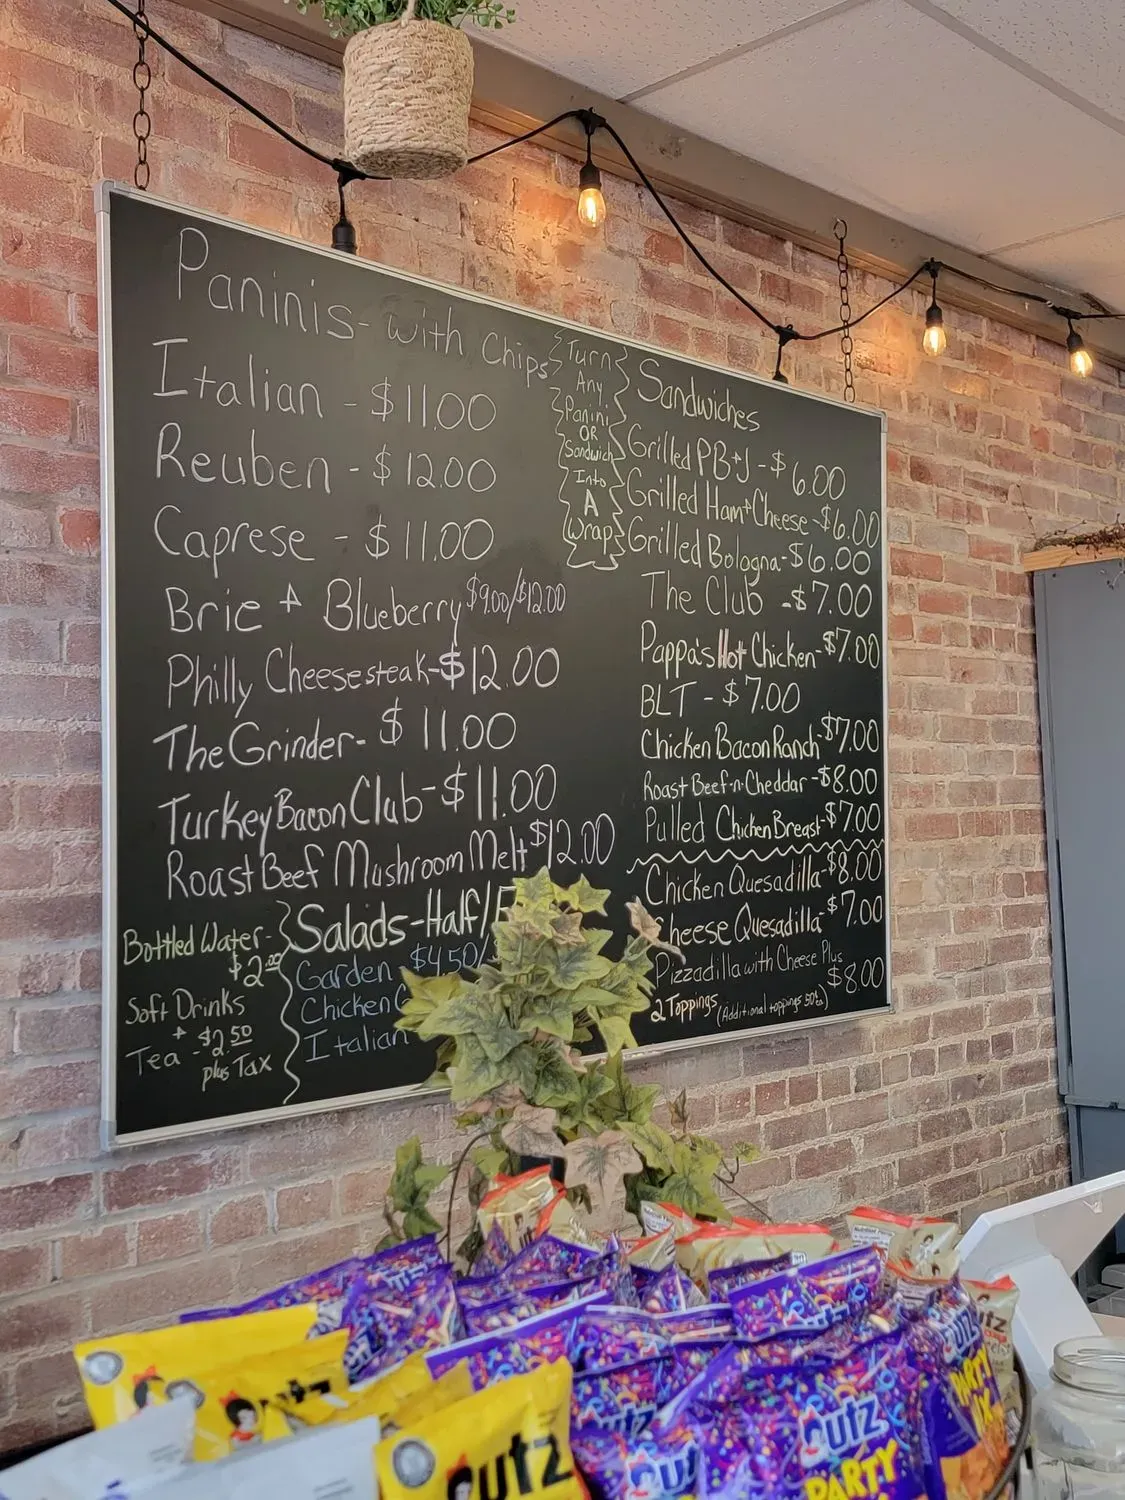 Paninis - with Chips
Italian - $11.00
Reuben - $12.00
Caprese - $11.00
Brie + Blueberry $9.00/$12.00
Philly Cheesesteak - $12.00
The Grinder - $11.00
Turkey Bacon Club - $11.00
Roast Beef Mushroom Melt $12.00
Bottled Water -
$2.00
Soft Drinks
+ $2.50
Tea -
plus Tax
Salads - Half/
Garden $4.50/
Chicken
Italian
Turn
Any
Panini
OR
Sandwich
Into
A
Wrap
Sandwiches
Grilled PB+J - $6.00
Grilled Ham+Cheese - $6.00
Grilled Bologna - $6.00
The Club - $7.00
Pappa's Hot Chicken - $7.00
BLT - $7.00
Chicken Bacon Ranch $7.00
Roast Beef-n-Cheddar - $8.00
Pulled Chicken Breast - $7.00
Chicken Quesadilla - $8.00
Cheese Quesadilla - $7.00
Pizzadilla with Cheese Plus
$8.00
2 Toppings (Additional toppings 50¢ ea)
utz
utz
PARTY
utz
PARTY